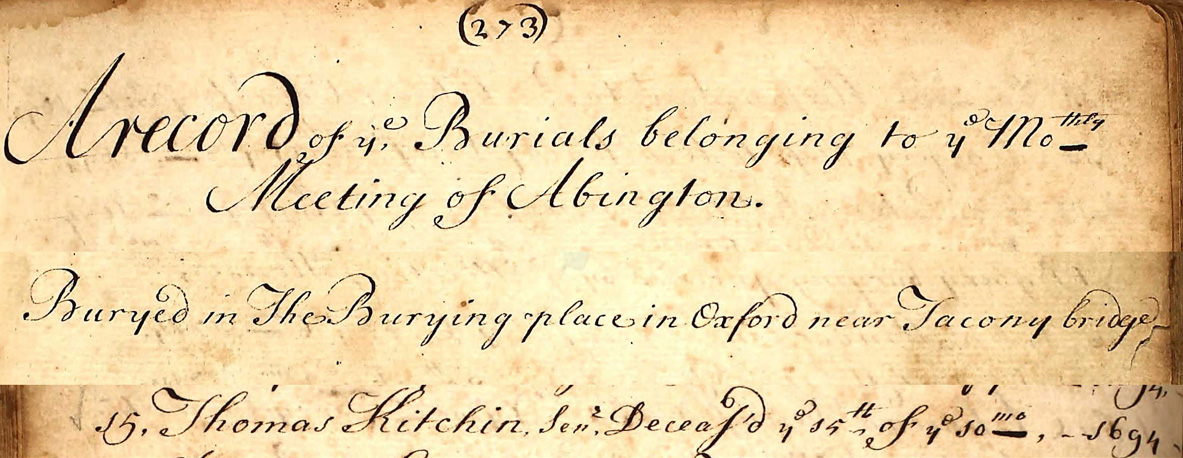 (273)
A record of ye. Burials belonging to ye Mothly
Meeting of Abington.
Buryed in The Burying place in Oxford near Tacony bridge
94,
15, Thomas Kitchin, Senr. Deceas'd ye 15th of ye 10mo, - 1694